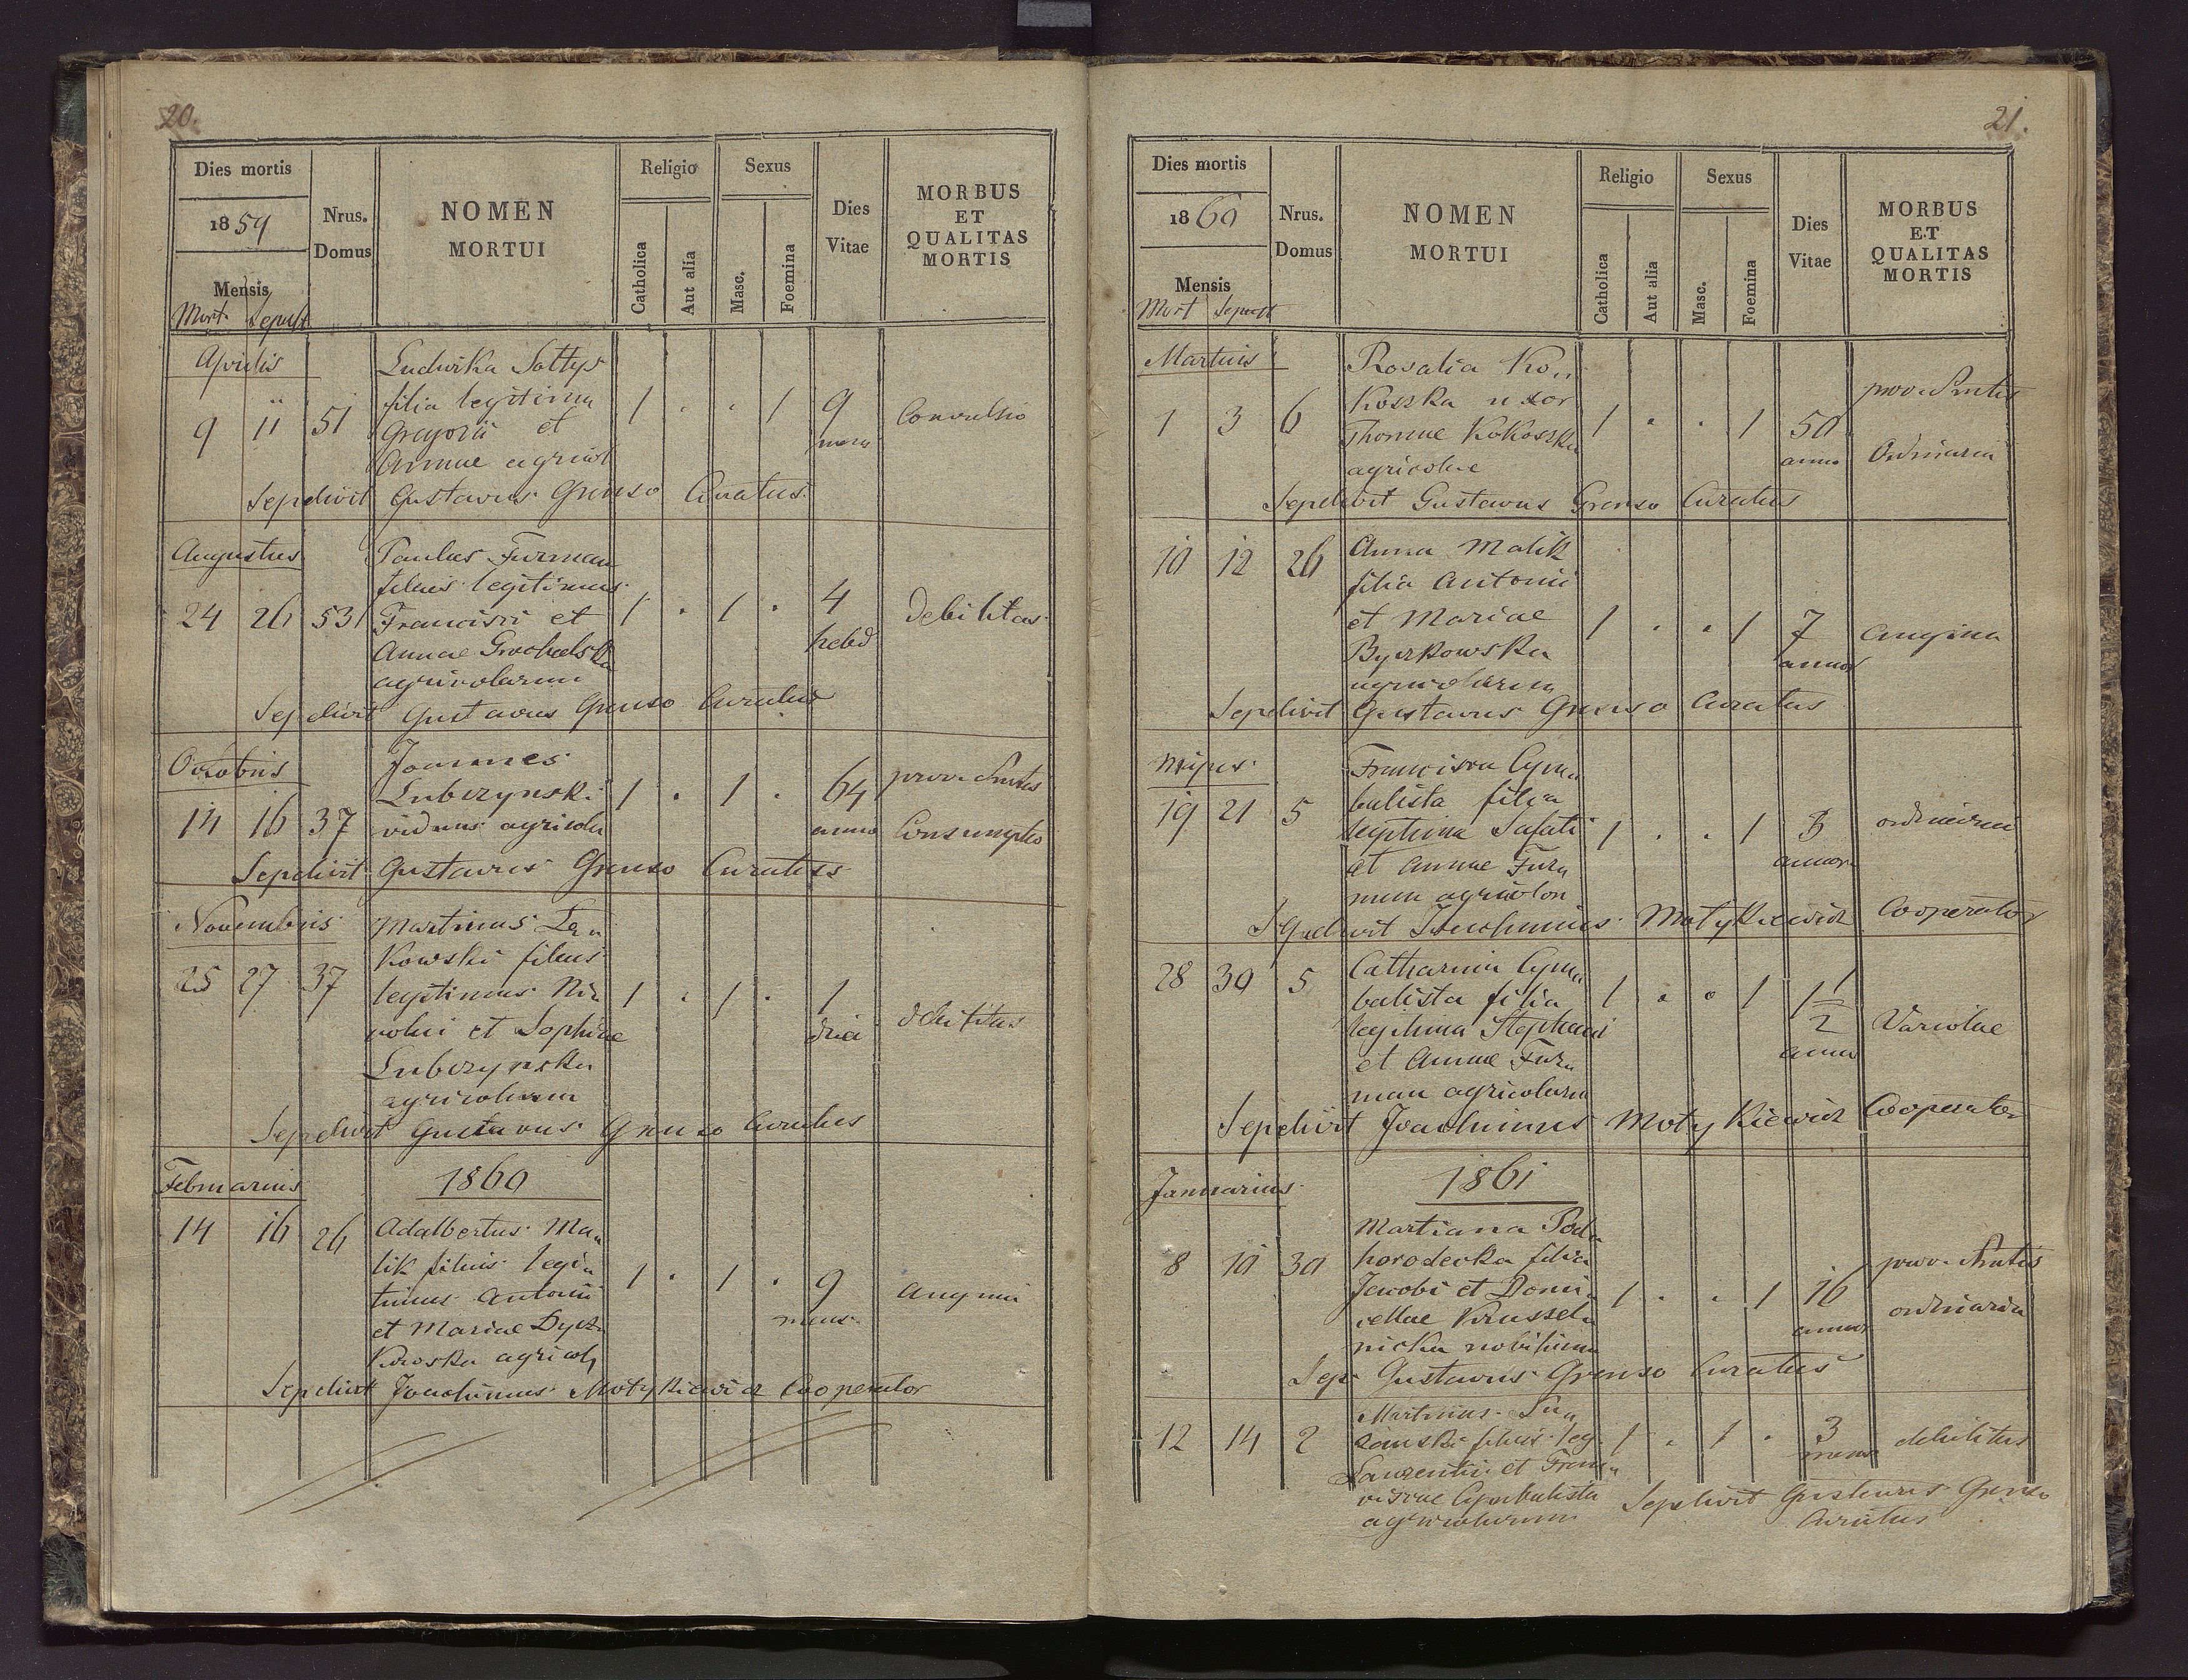 20.
Dies mortis
1859
Mensis
Mort. Sepult
Nrus. Domus
NOMEN
MORTUI
Religio
Catholica
Aut alia
Sexus
Masc.
Foemina
Dies
Vitae
MORBUS
ET
QUALITAS
MORTIS
Aprilis
Ludwika Sottys
filia legitima
9 11 51 Gregorii et 1 1 9 Convulsio
Annae agricol mens
Sepelivit Gustavus Grenso Curatus
Augustus
Paulus Furman
filius legitimus
24 26 53 Francisci et 1 1 4 debilitas
Annae Grochalska hebd
agricolarum
Sepelivit Gustavus Grenso Curatus
Octobris
Joannes
Lubczynski 1 1 64 prov. Smtis
14 16 37 viduus agricola anno Consumptio
Sepelivit Gustavus Grenso Curatus
Novembris
Martinus
kowski filius
25 27 37 legitimus Ni 1 1 1 debilitas
colai et Sophiae diei
Lubczynska
agricolarum
Sepelivit Gustavus Grenso Curatus
Februarius
1860
14 16 26 Adalbertus Ma
lik filius legi
timus Antonii 1 1 9 angina
et Mariae Dycz mens
kowska agricol
Sepelivit Joachimus Motykiewicz Cooperator
21.
Dies mortis
1860
Mensis
Mort Sepult
Nrus.
Domus
NOMEN
MORTUI
Religio
Catholica
Aut alia
Sexus
Masc.
Foemina
Dies
Vitae
MORBUS
ET
QUALITAS
MORTIS
Martius
Rosalia Ko
koszka uxor prov. Smtis
1 3 6 Thomae Kokoszka 1 1 50
agricolae anno Ordinaria
Sepelivit Gustavus Grenso Curatus
10 12 26 Anna Malik
filia Antonii
et Mariae 1 1 7 angina
Byczkowska annor
agricolarum
Sepelivit Gustavus Grenso Curatus
Francisca Cym
19 21 5 balista filia
legitima 1 1 3 ordinaria
et Annae Fur annor
man agricolar
Sepelivit Joachimus Motykiewicz Cooperator
28 30 5 Catharina Cym
balista filia 1 1 1 1/2
legitima Stephani Variolae
et Annae Fur anno
man agricolarum
Sepelivit Joachimus Motykiewicz Cooperator
Januarius
1861
Martiana Pod
8 10 30 horodecka filia prov. Smtis
Jacobi et Domi 1 1 16 ordinaria
cellae Krussel annor
nicka nobilium
Sep. Gustavus Grenso Curatus
Martinus
12 14 2 filius leg 1 1 3 debilitas
Laurentii et Fran mens
ciscae Cymbalista
agricolarum
Sepelivit Gustavus Grenso
Curatus